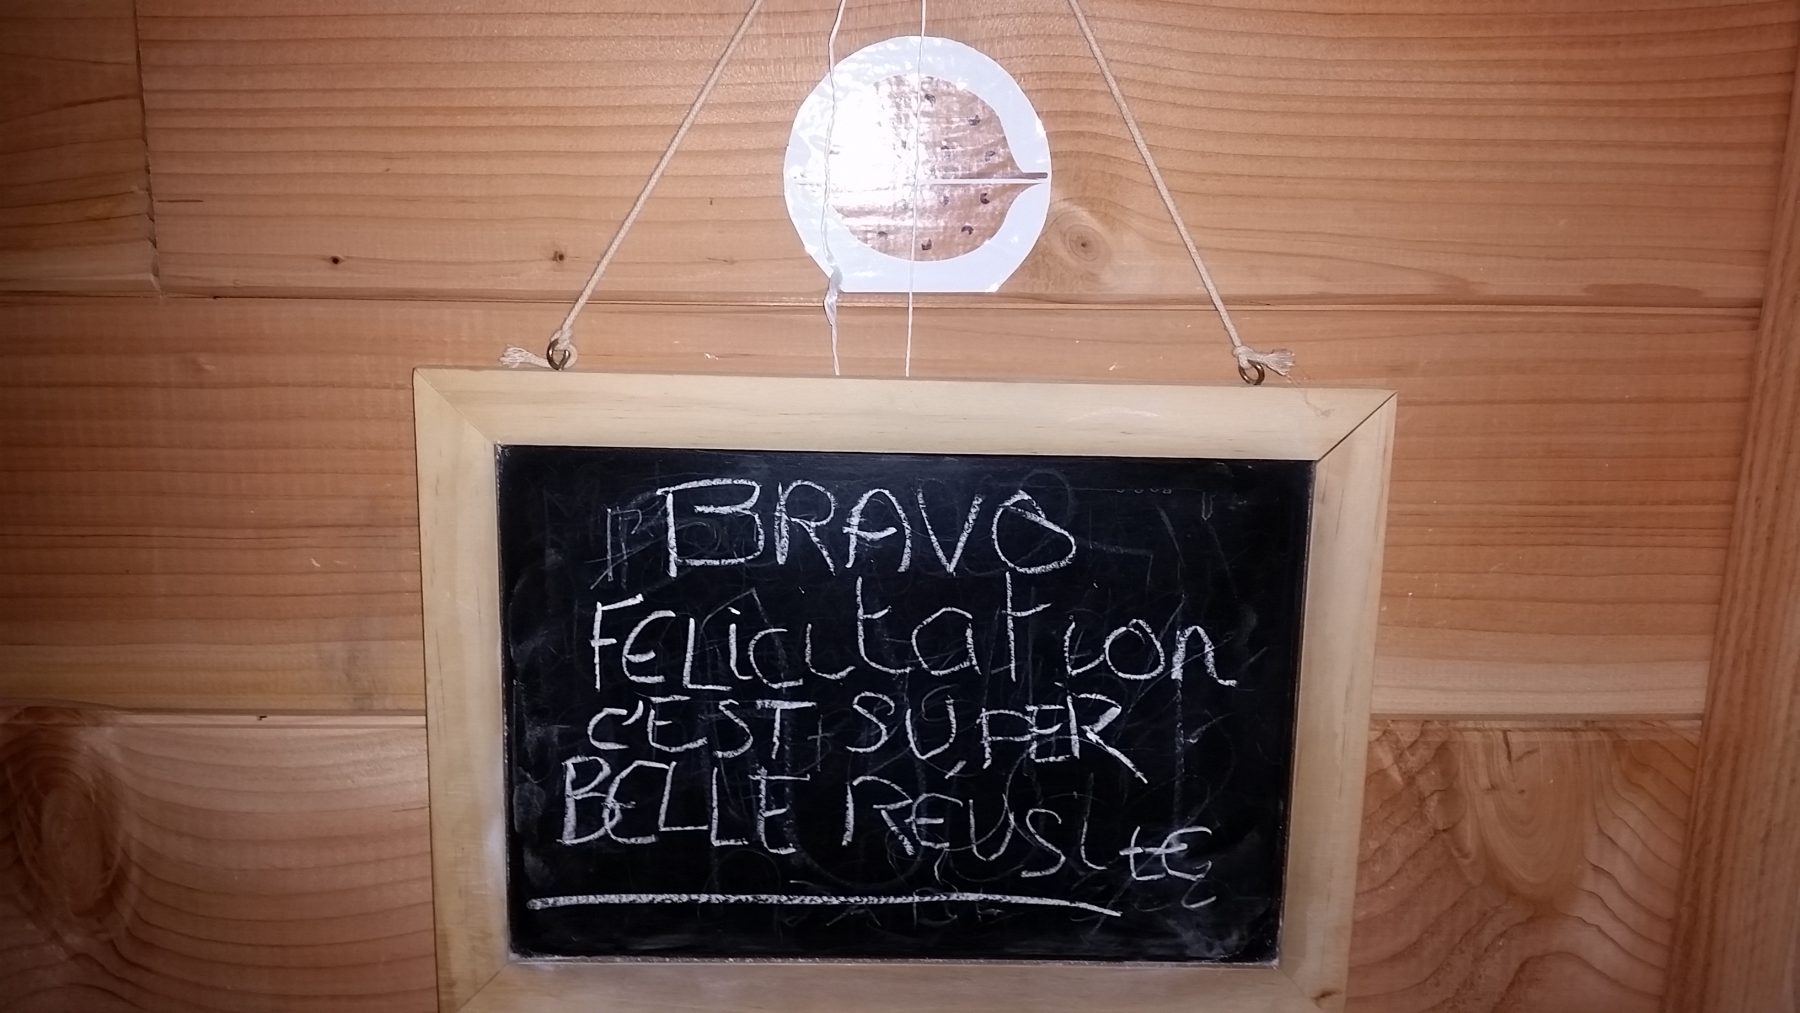 BRAVO
FELicitation
C'EST SUPER
BELLE RÉUSItE